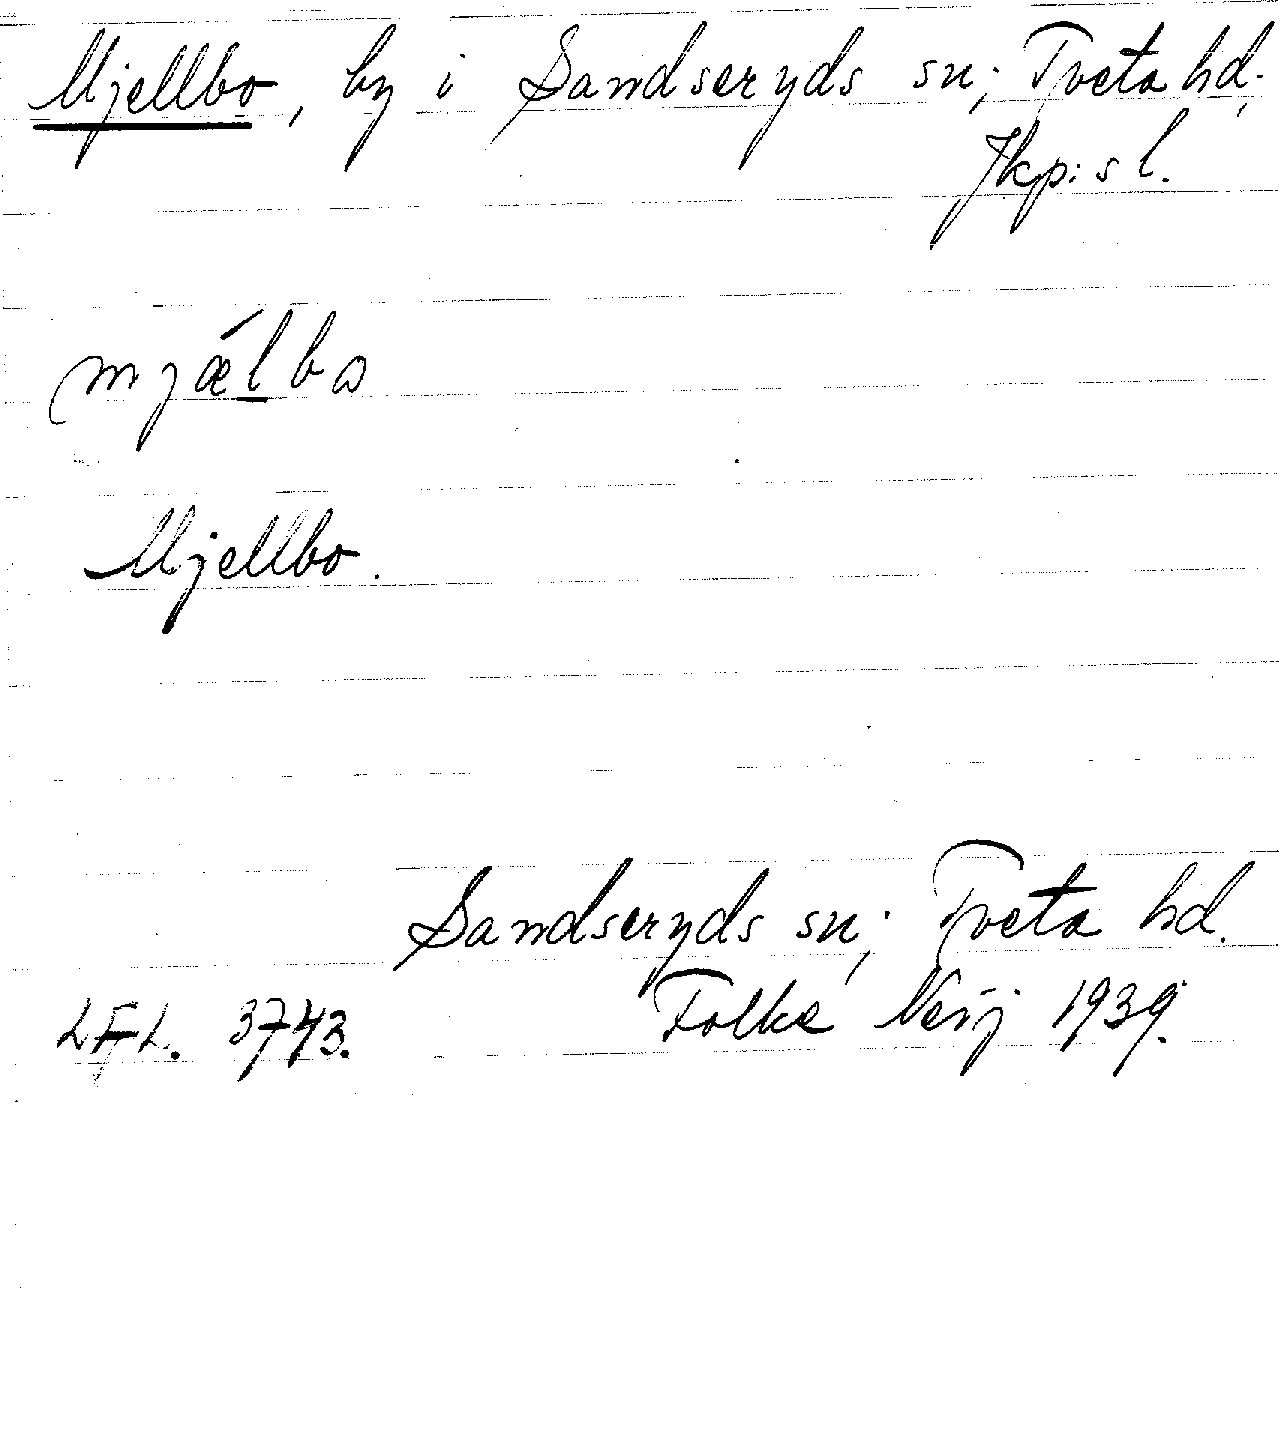 Mjellbo, by i Sandseryds sn; Tveta hd;
Jkp:s l.
mjǽlbo
Mjellbo.
Sandseryds sn; Tveta hd.
L.F.L. 3743. Folke 1939.